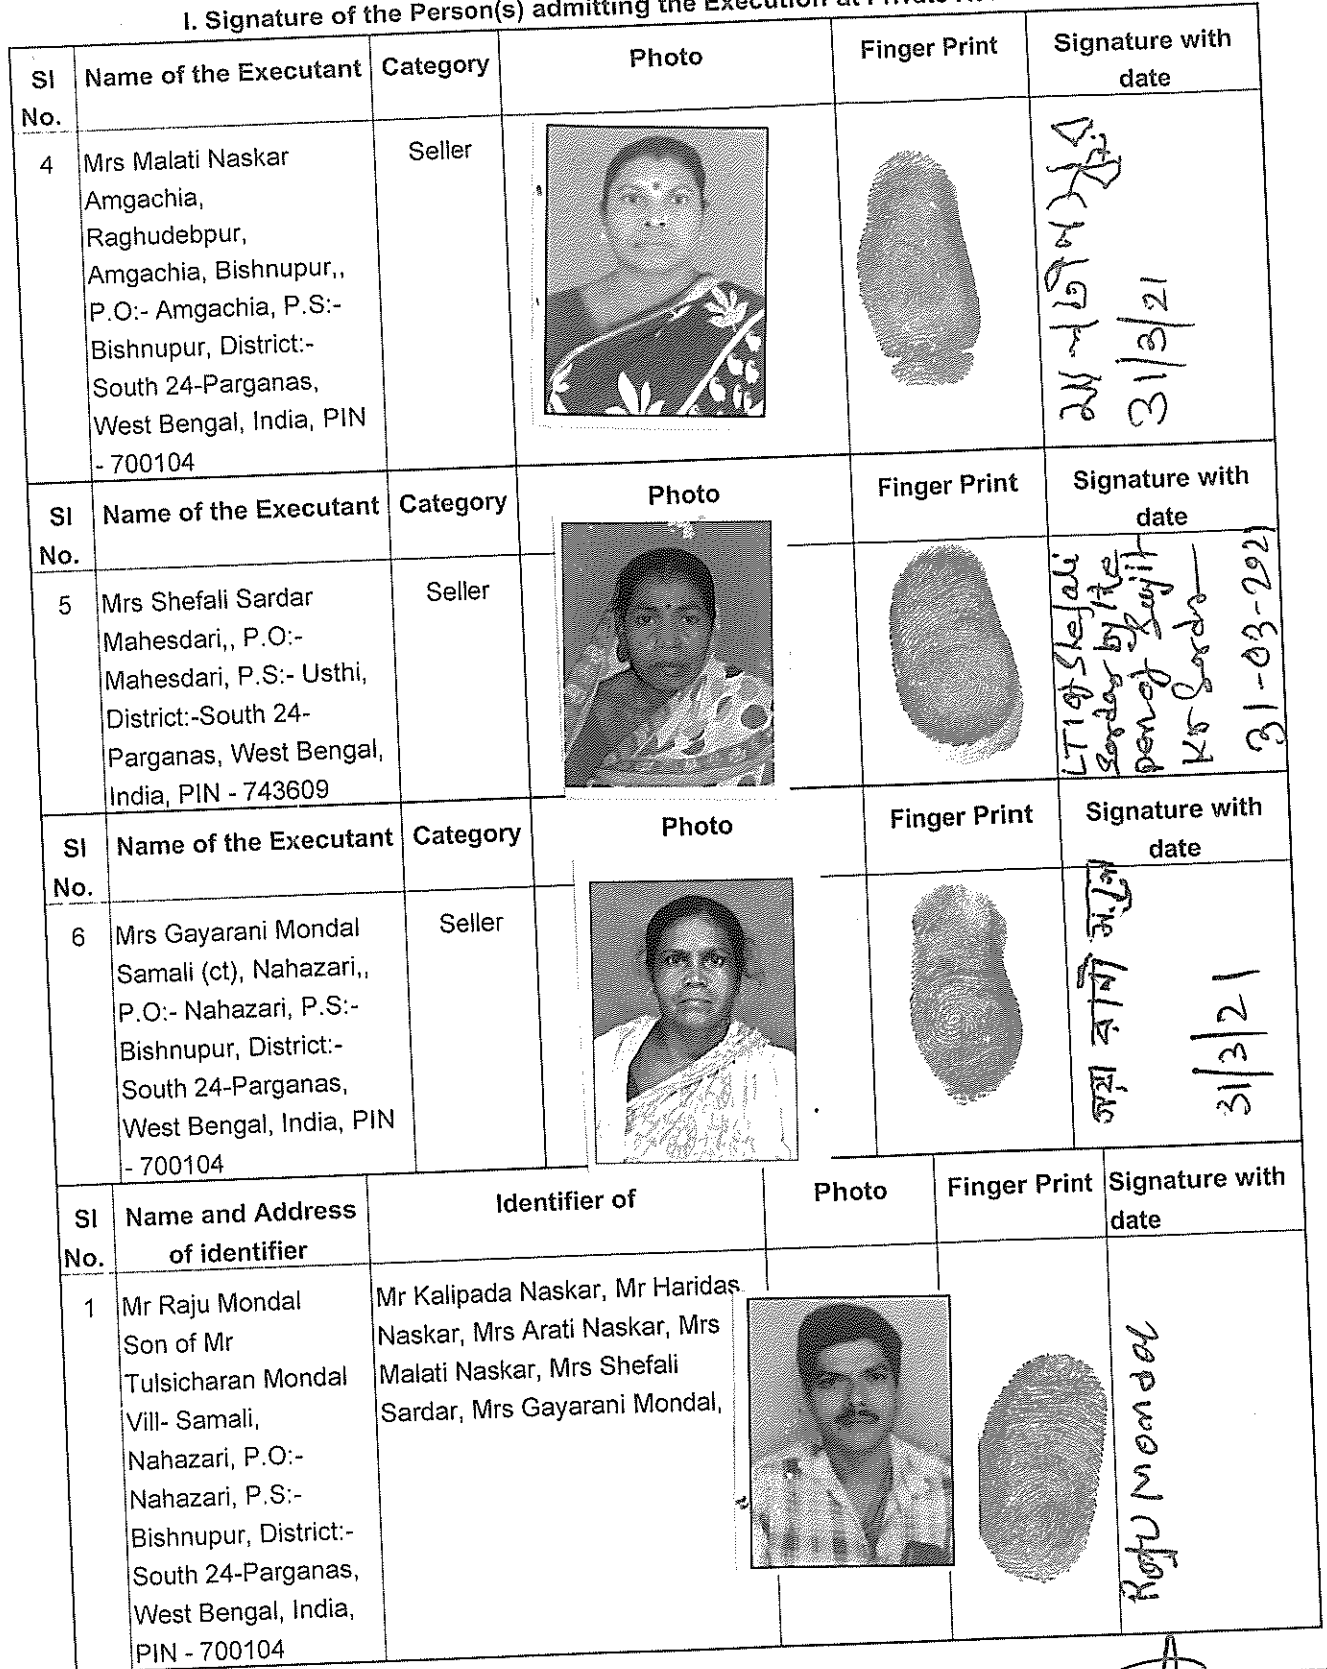 I. Signature of the Person(s) admitting the Execution at Private
Sl No. Name of the Executant Category Photo Finger Print Signature with date
4 Mrs Malati Naskar Seller
Amgachia,
Raghudebpur,
Amgachia, Bishnupur,,
P.O:- Amgachia, P.S:-
Bishnupur, District:-
South 24-Parganas,
West Bengal, India, PIN
- 700104
31/3/21
Sl No. Name of the Executant Category Photo Finger Print Signature with date
5 Mrs Shefali Sardar Seller
Mahesdari,, P.O:-
Mahesdari, P.S:- Usthi,
District:-South 24-
Parganas, West Bengal,
India, PIN - 743609
LTI of Shefali
Sardar by the
pen of Sujit
Kr Sardar
31-03-2021
Sl No. Name of the Executant Category Photo Finger Print Signature with date
6 Mrs Gayarani Mondal Seller
Samali (ct), Nahazari,,
P.O:- Nahazari, P.S:-
Bishnupur, District:-
South 24-Parganas,
West Bengal, India, PIN
- 700104
31/3/21
Sl No. Name and Address of identifier Identifier of Photo Finger Print Signature with date
1 Mr Raju Mondal
Son of Mr
Tulsicharan Mondal
Vill- Samali,
Nahazari, P.O:-
Nahazari, P.S:-
Bishnupur, District:-
South 24-Parganas,
West Bengal, India,
PIN - 700104
Mr Kalipada Naskar, Mr Haridas
Naskar, Mrs Arati Naskar, Mrs
Malati Naskar, Mrs Shefali
Sardar, Mrs Gayarani Mondal,
Raju Mondal